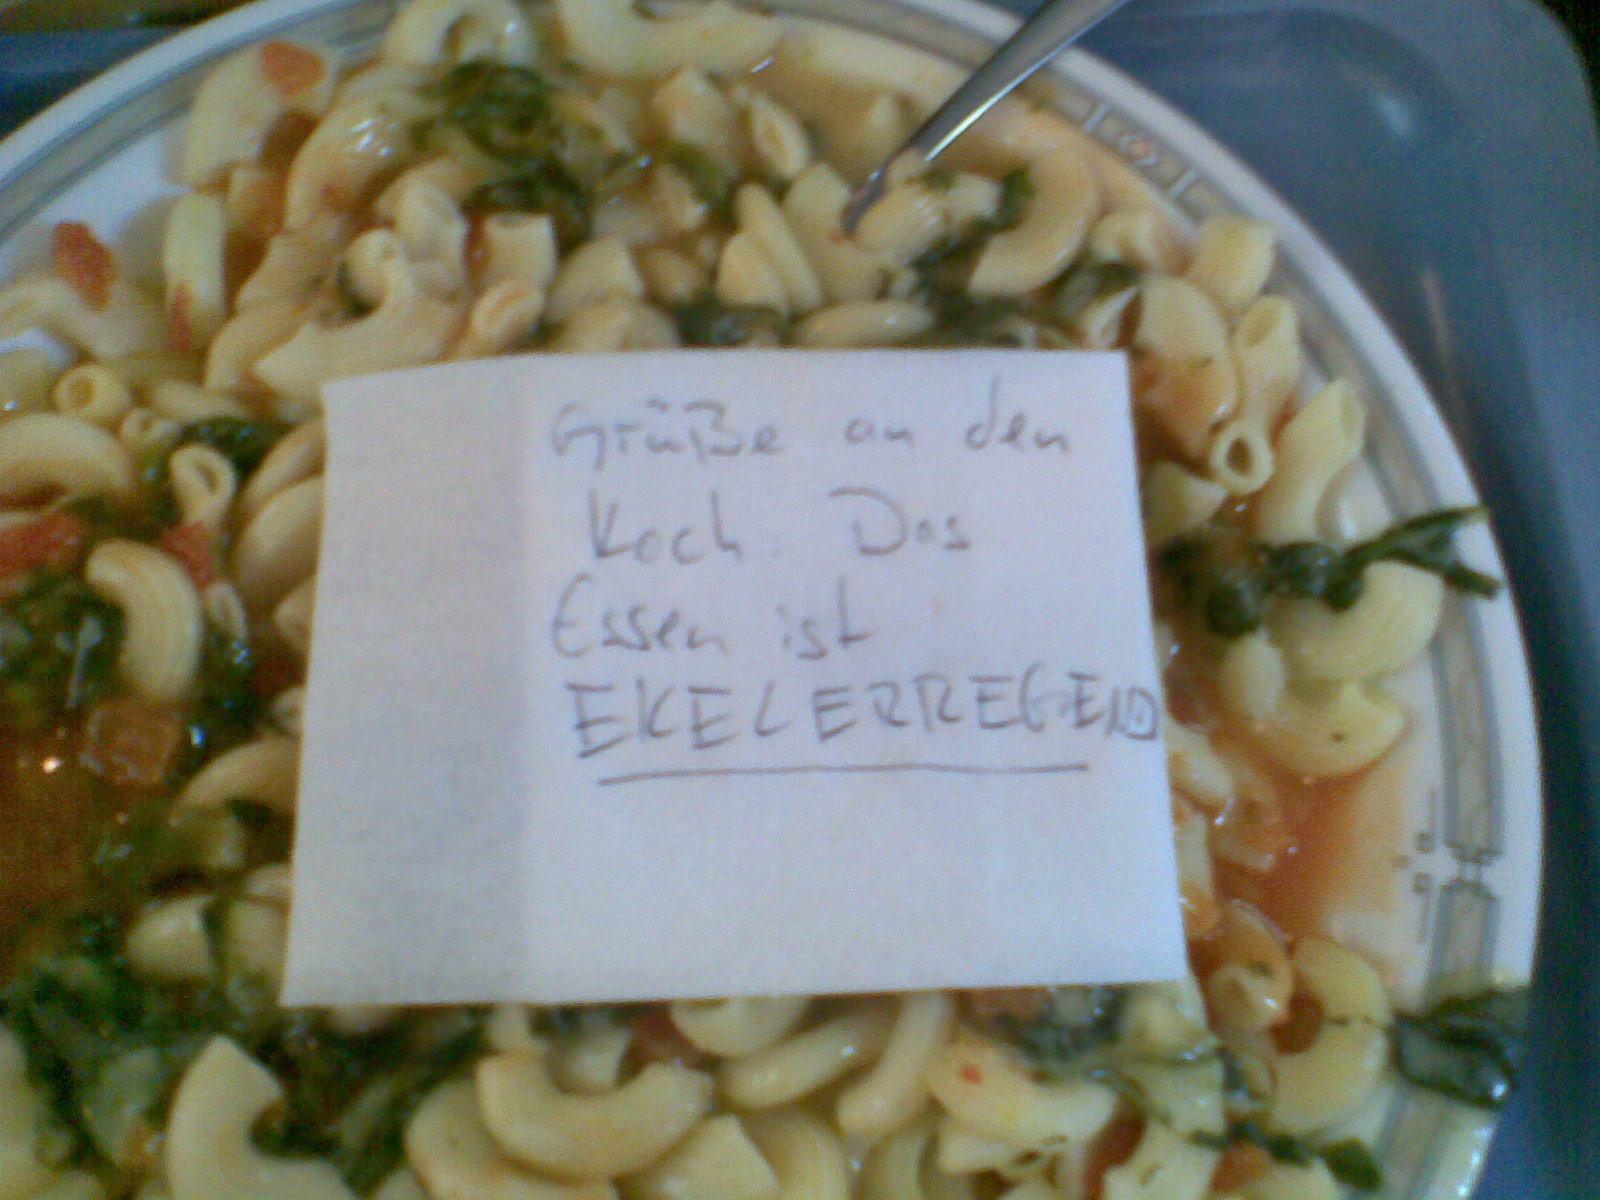 Grüße an den
Koch: Das
Essen ist
EKELERREGEND